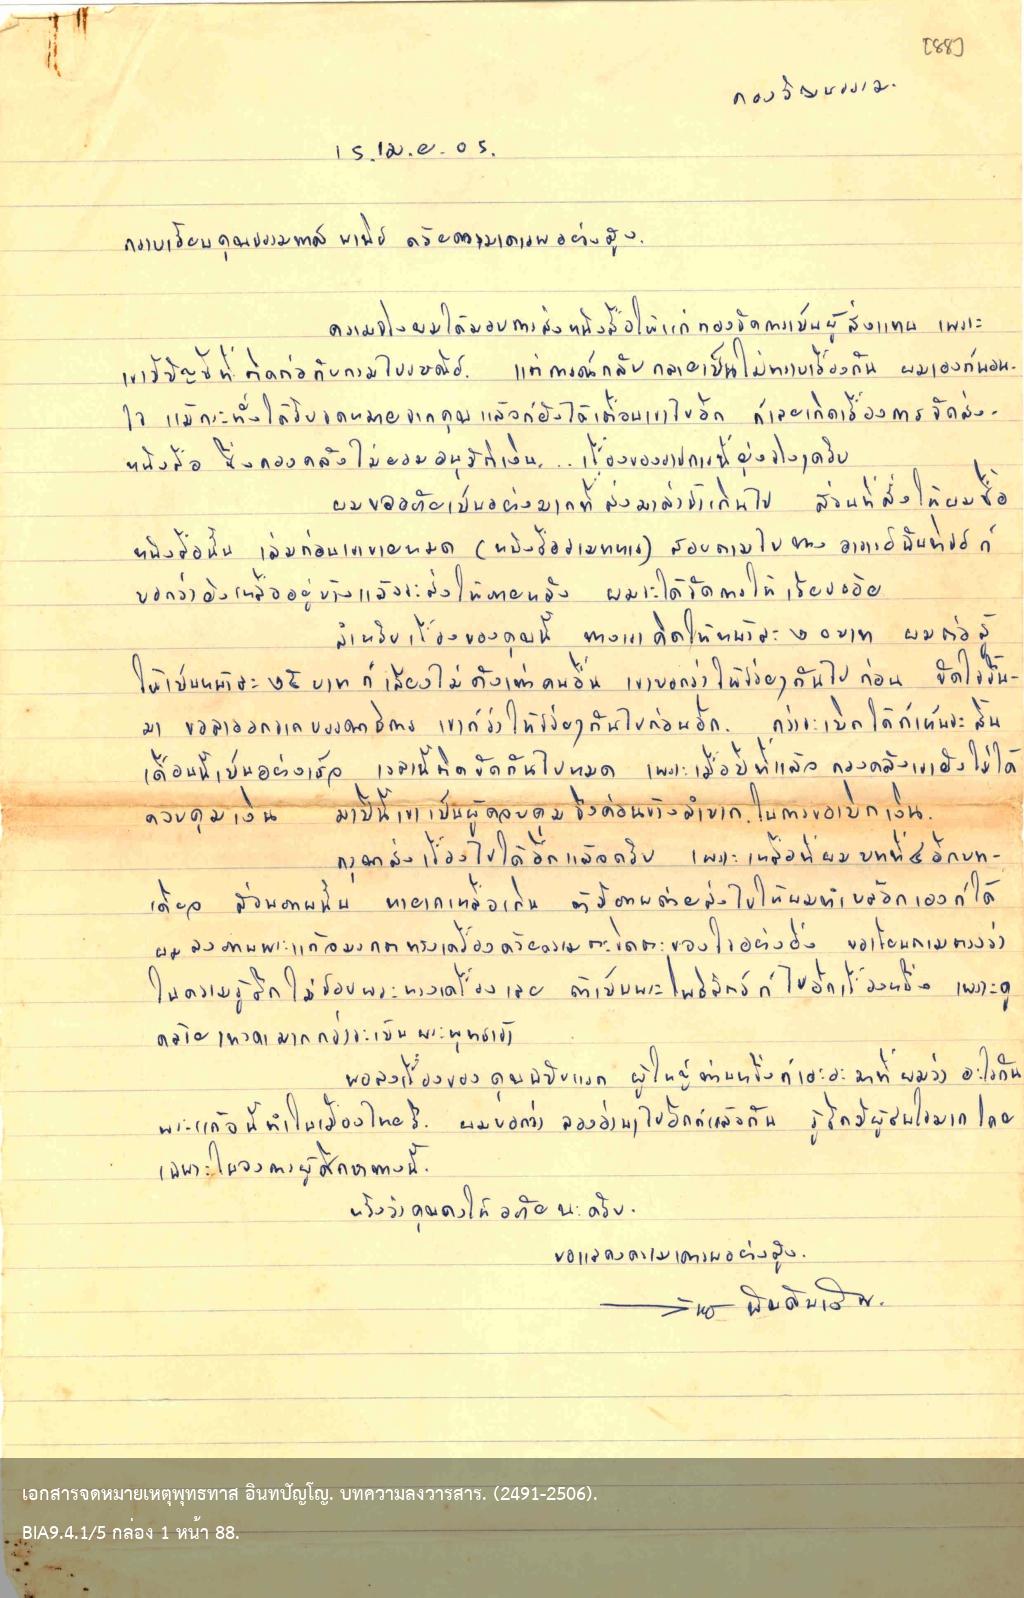 [88]
กองวัฒนธรรม.
15. เม.ย. 05.
กราบเรียนคุณธรรมทาส พานิช ด้วยความเคารพอย่างสูง.
ความจริงผมได้มอบการส่งหนังสือให้แก่กองจัดการเป็นผู้ส่งแทน เพราะ
เขามีบัญชีที่ติดต่อกับกรมไปรษณีย์. แต่การณ์กลับกลายเป็นไม่ทราบเรื่องกัน ผมเองก็นอน-
ใจ แม้กระทั่งได้รับจดหมายจากคุณแล้วก็ยังได้เตือนเขาไปอีก ก็เลยเกิดเรื่องการจัดส่ง-
หนังสือ ซึ่งกองคลังไม่ยอมอนุมัติเงิน... เรื่องของราชการนี้ยุ่งจริงๆครับ
ผมขออภัยเป็นอย่างมากที่ส่งมาล่าช้าเกินไป ส่วนที่สั่งให้ผมซื้อ
หนังสือนั้น เล่มก่อนเขาขายหมด (หนังสือ) สอบถามไปทาง อาจารย์ ก็
บอกว่ายังเหลืออยู่บ้างแล้วจะส่งให้ภายหลัง ผมจะได้จัดการให้เรียบร้อย
สำหรับเรื่องของคุณนี้ ทางเขาคิดให้หน้าละ ๒๐ บาท ผมต่อสู้
ให้เป็นหน้าละ ๒๕ บาท ก็เสียงไม่ดังเท่าคนอื่น เขาบอกว่าให้เรื่อยๆกันไปก่อน ขัดใจขึ้น-
มา ขอลาออกจากบรรณาธิการ เขาก็ว่าให้เรื่อยๆกันไปก่อนอีก. กว่าจะเบิกได้ก็เห็นจะสิ้น
เดือนนี้เป็นอย่างเร็ว เวลานี้ติดขัดกันไปหมด เพราะเมื่อปีที่แล้ว กองคลังเขายังไม่ได้
ควบคุมเงิน มาปีนี้เขาเป็นผู้ควบคุม จึงค่อนข้างลำบาก.ในการขอเบิกเงิน.
กรุณาส่งเรื่องไปได้อีกแล้วครับ เพราะเหลือที่ผมบทที่ ๔ อีกบท-
เดียว ส่วนภาพนั้น หายากเหลือเกิน ถ้ามีภาพถ่ายส่งไปให้ผมทำบล๊อกเองก็ได้
ผมลงภาพพระแก้วมรกตทรงเครื่องด้วยความตะขิดตะขวงใจอย่างยิ่ง ขอเรียนตามตรงว่า
ในความรู้สึกไม่ชอบพระทรงเครื่องเลย ถ้าเป็นพระโพธิสัตว์ ก็ไปอีกเรื่องหนึ่ง เพราะดู
คล้ายเทวดามากกว่าจะเป็นพระพุทธเจ้า
พอลงเรื่องของคุณฉบับแรก ผู้ใหญ่ท่านหนึ่งก็เอะอะมาที่ผมว่า อะไรกัน
พระแก้วนี้ทำในเมืองไทยรึ. ผมบอกว่า ลองอ่านๆไปอีกก็แล้วกัน รู้สึกมีผู้สนใจมาก โดย
เฉพาะในวงการผู้ศึกษาทางนี้.
หวังว่าคุณคงให้อภัยนะครับ.
ขอแสดงความเคารพอย่างสูง.
เอกสารจดหมายเหตุพุทธทาส อินทปัญโญ. บทความลงวารสาร. (2491-2506).
BIA9.4.1/5 กล่อง 1 หน้า 88.